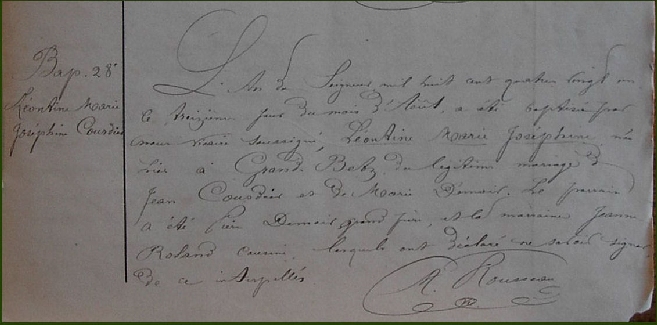 Bap. 28e
Léontine Marie
Joséphine Coupdié
L'An du Seigneur mil huit cent quatre vingt un
le treizième jour du mois d'Août, a été baptisée par
nous Vicaire soussigné, Léontine Marie Joséphine née
hier à Grand-Betz du légitime mariage de
Jean et de Marie Demois. Le parrain
a été Demois grand père, et la marraine Jeanne
Roland cousine, lesquels ont déclaré ne savoir signer
de ce interpellés
R. Rousseau